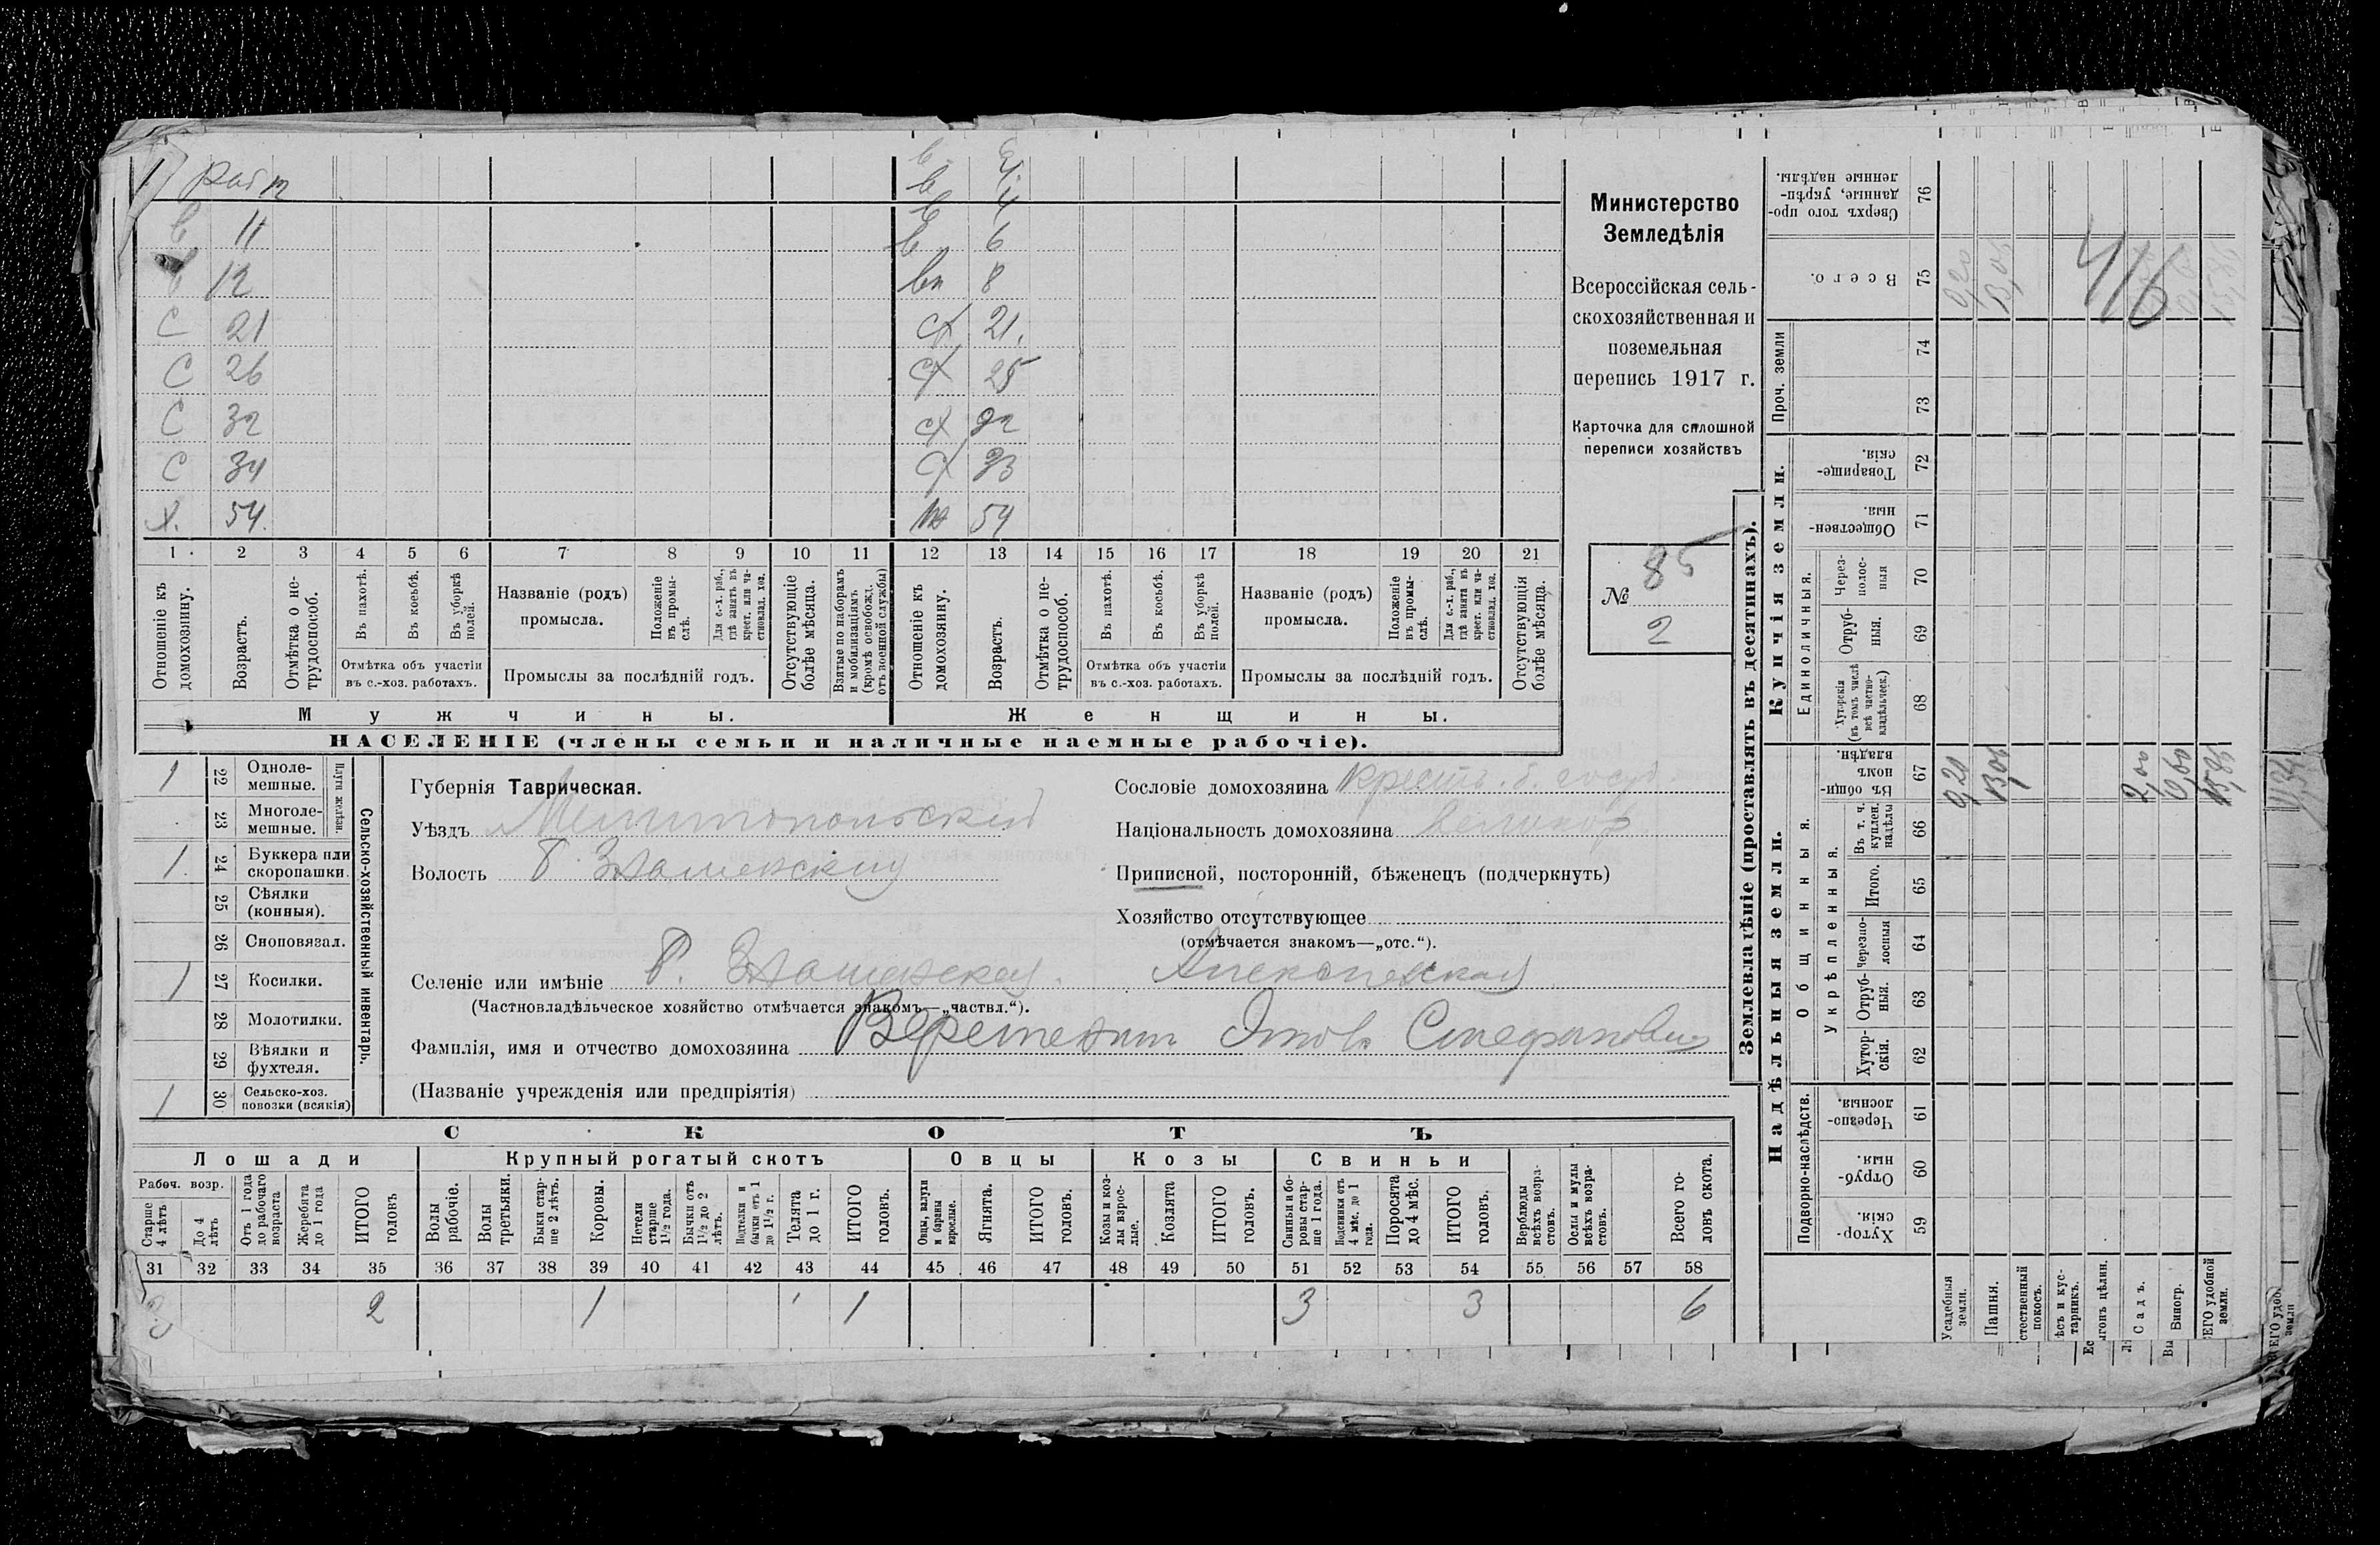 Министерство
Земледѣлія
Всероссійская сель-
скохозяйственная и
поземельная
перепись 1917 г.
Карточка для сплошной
переписи хозяйствъ
№ 85
2
11
12
С 21
С 26
С 32
С 34
Х. 54.
6
вн 8
21.
25
54
1 2 3 4 5 6 7 8 9 10 11 12 13 14 15 16 17 18 19 20 21
Отношеніе къ домохозяину.
Возрастъ.
Отмѣтка о не-трудоспособ.
Въ пахотѣ.
Въ косьбѣ.
Въ уборкѣ полей.
Отмѣтка объ участіи
въ с.-хоз. работахъ.
Названіе (родъ)
промысла.
Положеніе въ промы-слѣ.
Для с.-х. раб., гдѣ занятъ въ крест. или ча-стновлад. хоз.
Промыслы за послѣдній годъ.
Отсутствующіе болѣе мѣсяца.
Взятые по наборамъ и мобилизаціямъ (кромѣ освобожд. отъ военной службы)
Отношеніе къ домохозяину.
Возрастъ.
Отмѣтка о не-трудоспособ.
Въ пахотѣ.
Въ косьбѣ.
Въ уборкѣ полей.
Отмѣтка объ участіи
въ с.-хоз. работахъ.
Названіе (родъ)
промысла.
Положеніе въ промы-слѣ.
Для с.-х. раб., гдѣ занята въ крест. или ча-стновлад. хоз.
Промыслы за послѣдній годъ.
Отсутствующія болѣе мѣсяца.
Мужчины.
Женщины.
НАСЕЛЕНІЕ (члены семьи и наличные наемные рабочіе).
Сельско-хозяйственный инвентарь.
Плуги желѣзн.
1 22 Одноле-мешные.
23 Многоле-мешные.
1. 24 Буккера или скоропашки.
25 Сѣялки (конныя).
26 Сноповязал.
1 27 Косилки.
28 Молотилки.
29 Вѣялки и фухтеля.
1 30 Сельско-хоз. повозки (всякія)
Губернія Таврическая.
Уѣздъ Мелитопольский
Волость Б. Знаменская
Селеніе или имѣніе Б. Знаменская
(Частновладѣльческое хозяйство отмѣчается знакомъ—„частвл.“).
Фамилія, имя и отчество домохозяина
(Названіе учрежденія или предпріятія)
Сословіе домохозяина Крест. б. госуд
Національность домохозяина Великор
Приписной, посторонній, бѣженецъ (подчеркнуть)
Хозяйство отсутствующее
(отмѣчается знакомъ—„отс.“).
СКОТЪ
Лошади
Крупный рогатый скотъ
Овцы
Козы
Свиньи
Рабоч. возр.
Старше 4 лѣтъ
До 4 лѣтъ
Отъ 1 года до рабочаго возраста
Жеребята до 1 года
ИТОГО головъ
Волы рабочіе.
Волы третьяки.
Быки стар-ше 2 лѣтъ.
Коровы.
Нетели старше 1½ года.
Бычки отъ 1½ до 2 лѣтъ.
Подтелки и бычки отъ 1 до 1½ г.
Телята до 1 г.
ИТОГО головъ.
Овцы, валухи и бараны взрослые.
Ягнята.
ИТОГО головъ.
Козы и коз-лы взрос-лые.
Козлята
ИТОГО головъ.
Свиньи и бо-ровы стар-ше 1 года.
Подсвинки отъ 4 мѣс. до 1 года.
Поросята до 4 мѣс.
ИТОГО головъ.
Верблюды всѣхъ возра-стовъ.
Ослы и мулы всѣхъ возра-стовъ.
Всего го-ловъ скота.
31 32 33 34 35 36 37 38 39 40 41 42 43 44 45 46 47 48 49 50 51 52 53 54 55 56 57 58
2 1 1 3 3 6
Землевладѣніе (проставлять въ десятинахъ).
Надѣльныя земли.
Купчія земли.
Проч. земли
Подворно-наслѣдств.
Общинныя.
Укрѣпленныя.
Единоличныя.
Хутор-скія. 59
Отруб-ныя. 60
Черезпо-лосныя. 61
Хутор-скія. 62
Отруб-ныя. 63
Черезпо-лосныя 64
Итого. 65
Въ т. ч. куплен. надѣлы 66
Въ общи-номъ владѣн. 67
Хуторскія (въ томъ числѣ всѣ частно-владѣльческ.) 68
Отруб-ныя. 69
Через-полос-ныя 70
Обществен-ныя. 71
Товарище-скія. 72
73
74
Всего. 75
Сверхъ того про-данные, укрѣп-ленные надѣлы. 76
Усадебныя земли. 0,20
Пашня. 13,06
стественный покосъ.
ѣсъ и кус-тарникъ.
ыгонъ цѣлин.
Садъ. 2,00
Виногр. 0,60
ЕГО удобной земли. 15,86
416